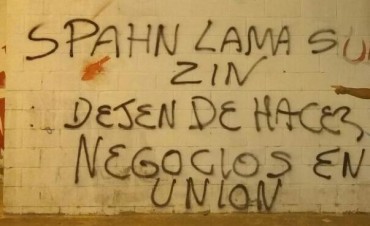 SPAHN LAMA SU
ZIN
DEJEN DE HACER
NEGOCIOS EN
UNION